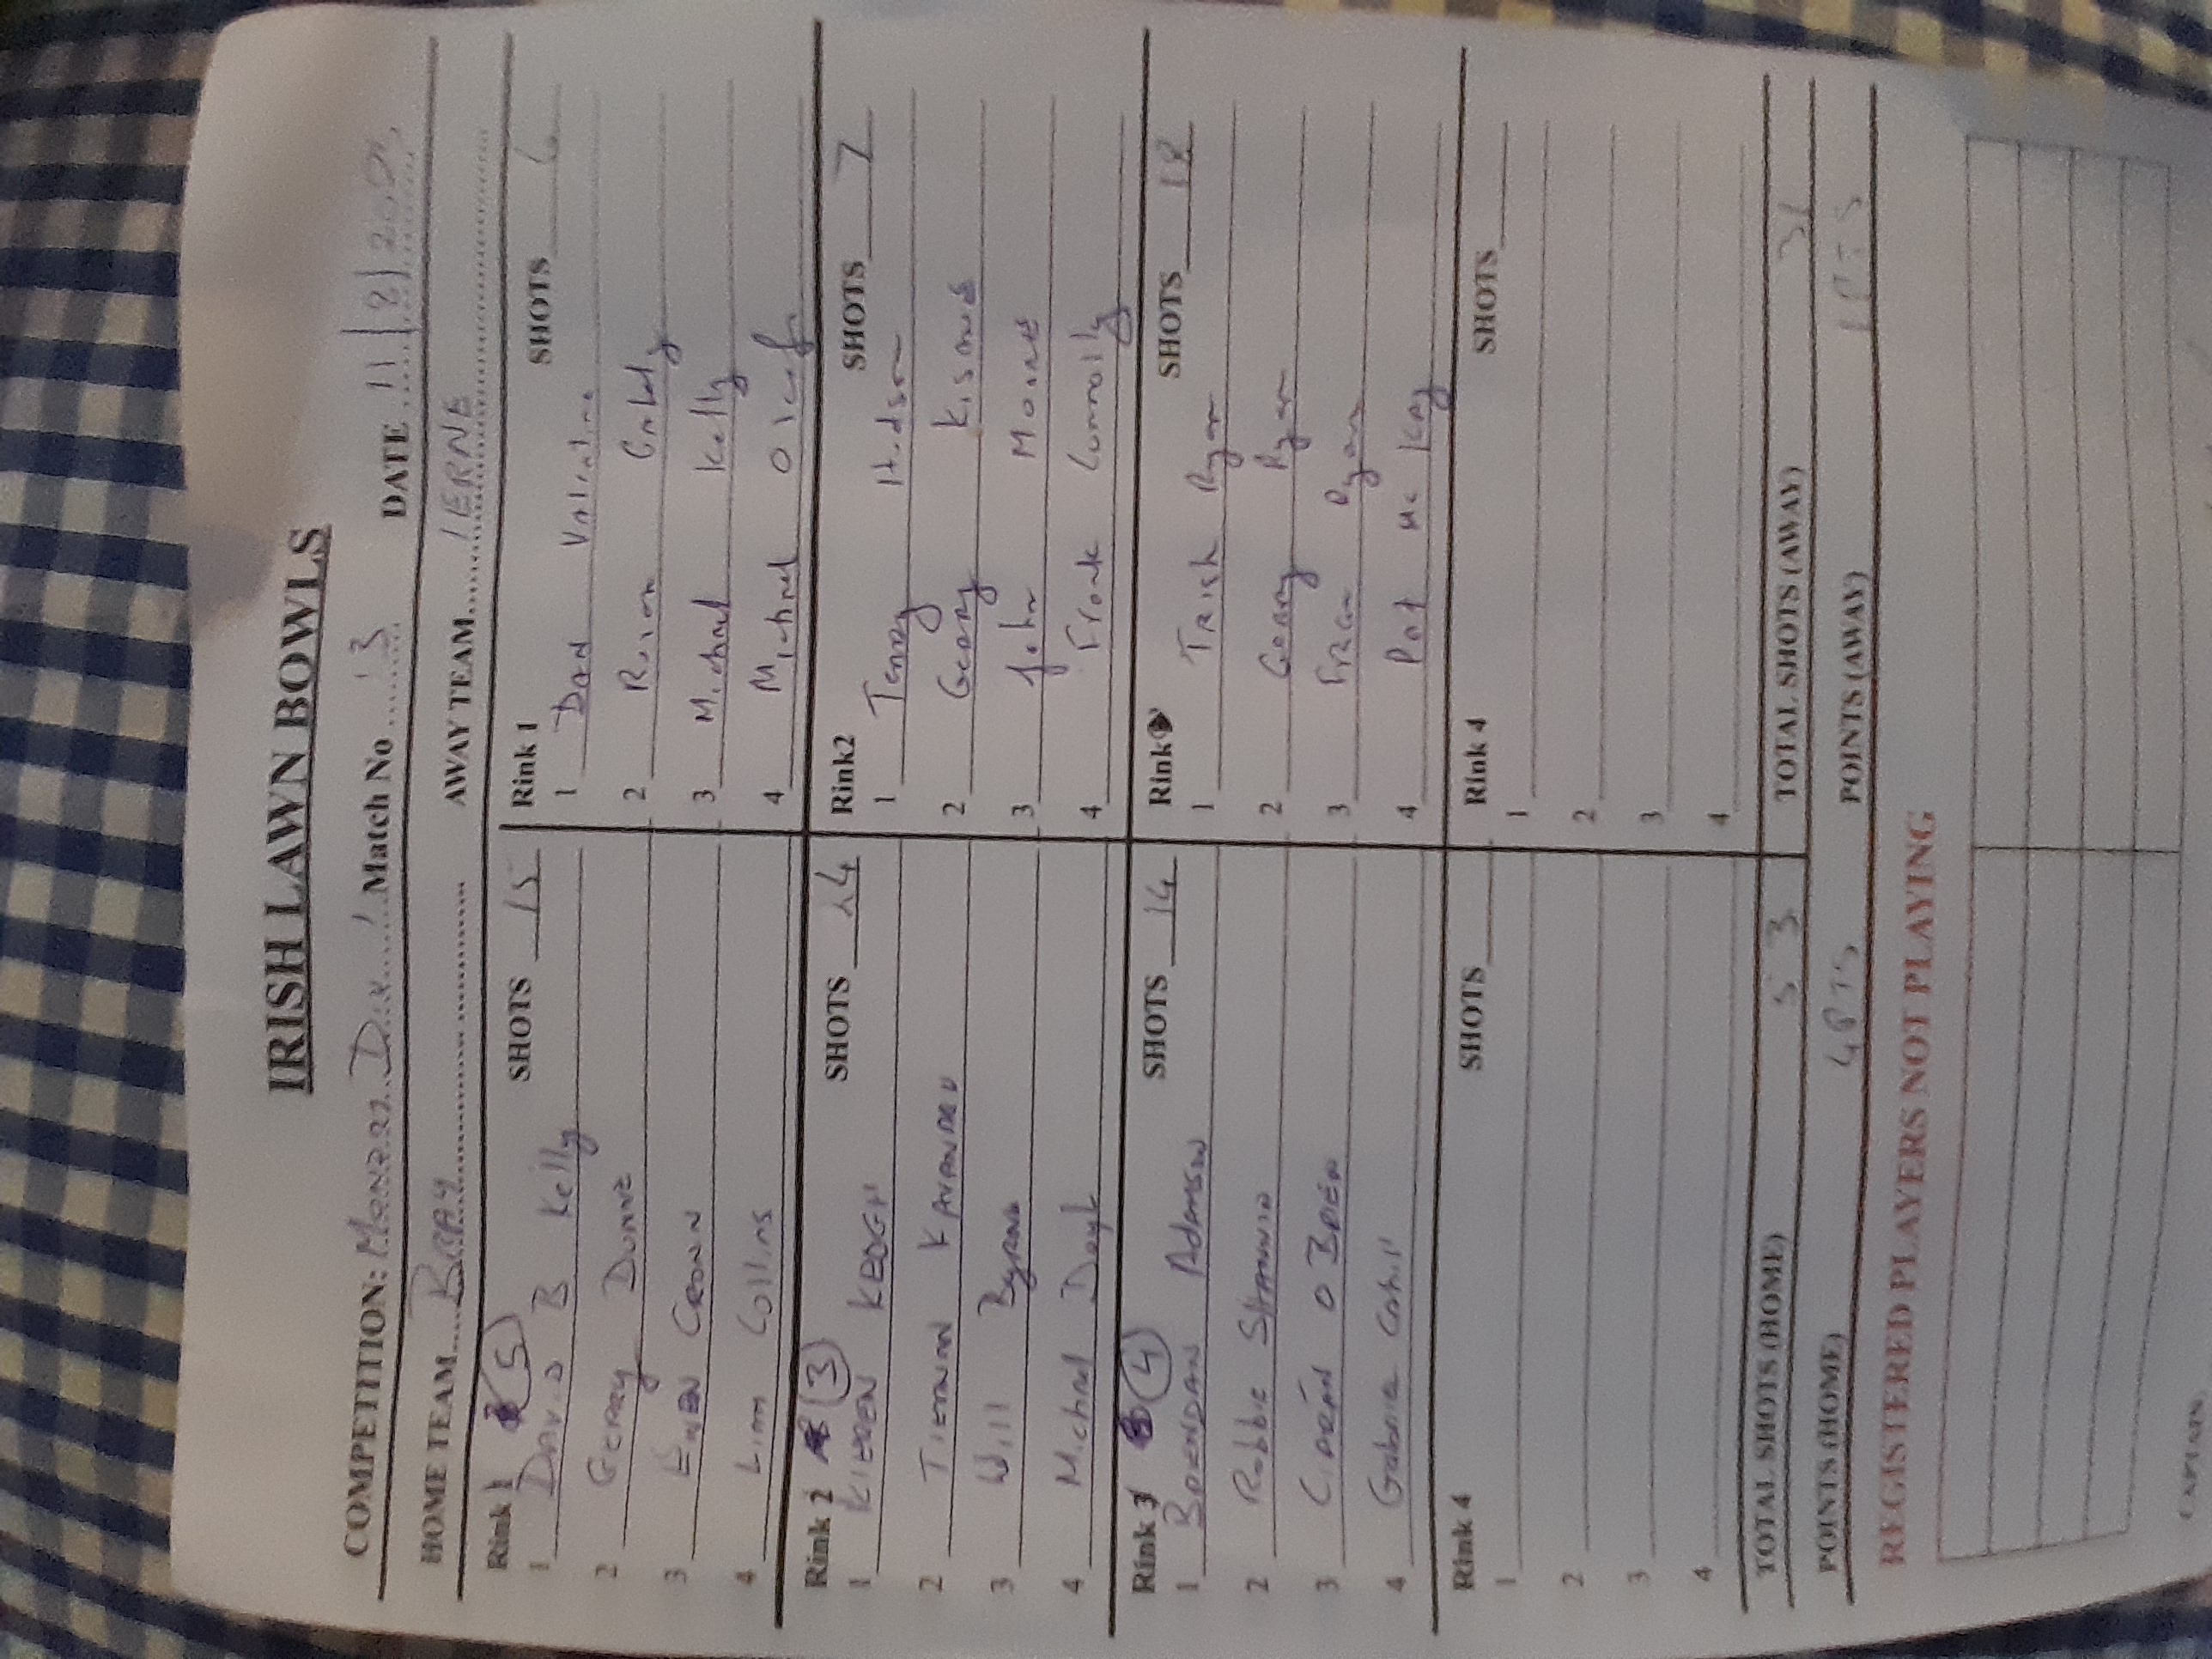 IRISH LAWN BOWLS
COMPETITION: Div 1 Match No 3 DATE 11/8/202
HOME TEAM BRAY AWAY TEAM IERNE
Rink 1 (5) SHOTS 15 Rink 1 SHOTS 6
1 DAVID B Kelly 1 Valentine
2 GERRY DUNNE 2
3 CRONIN 3 Michael Kelly
4 Liam Collins 4 Michael
Rink 2 (3) SHOTS 24 Rink2 SHOTS 7
1 KIEREN KEOGH 1 Terry Hudson
2 TIERNAN KAVANAGH 2 Gerry
3 Will Byrne 3 John Moore
4 Michael Doyle 4 Frank Connolly
Rink 3 (4) SHOTS 14 Rink SHOTS 18
1 BRENDAN ADAMSON 1 TRISH Ryan
2 Robbie 2 Gerry Ryan
3 CIARÁN O BRIEN 3 Fran Ryan
4 Gabriel Cahill 4 Pat Mc Kay
Rink 4 SHOTS Rink 4 SHOTS
1 1
2 2
3 3
4 4
TOTAL SHOTS (HOME) 53 TOTAL SHOTS (AWAY) 31
POINTS (HOME) 4 PTS POINTS (AWAY) 1 PTS
REGISTERED PLAYERS NOT PLAYING